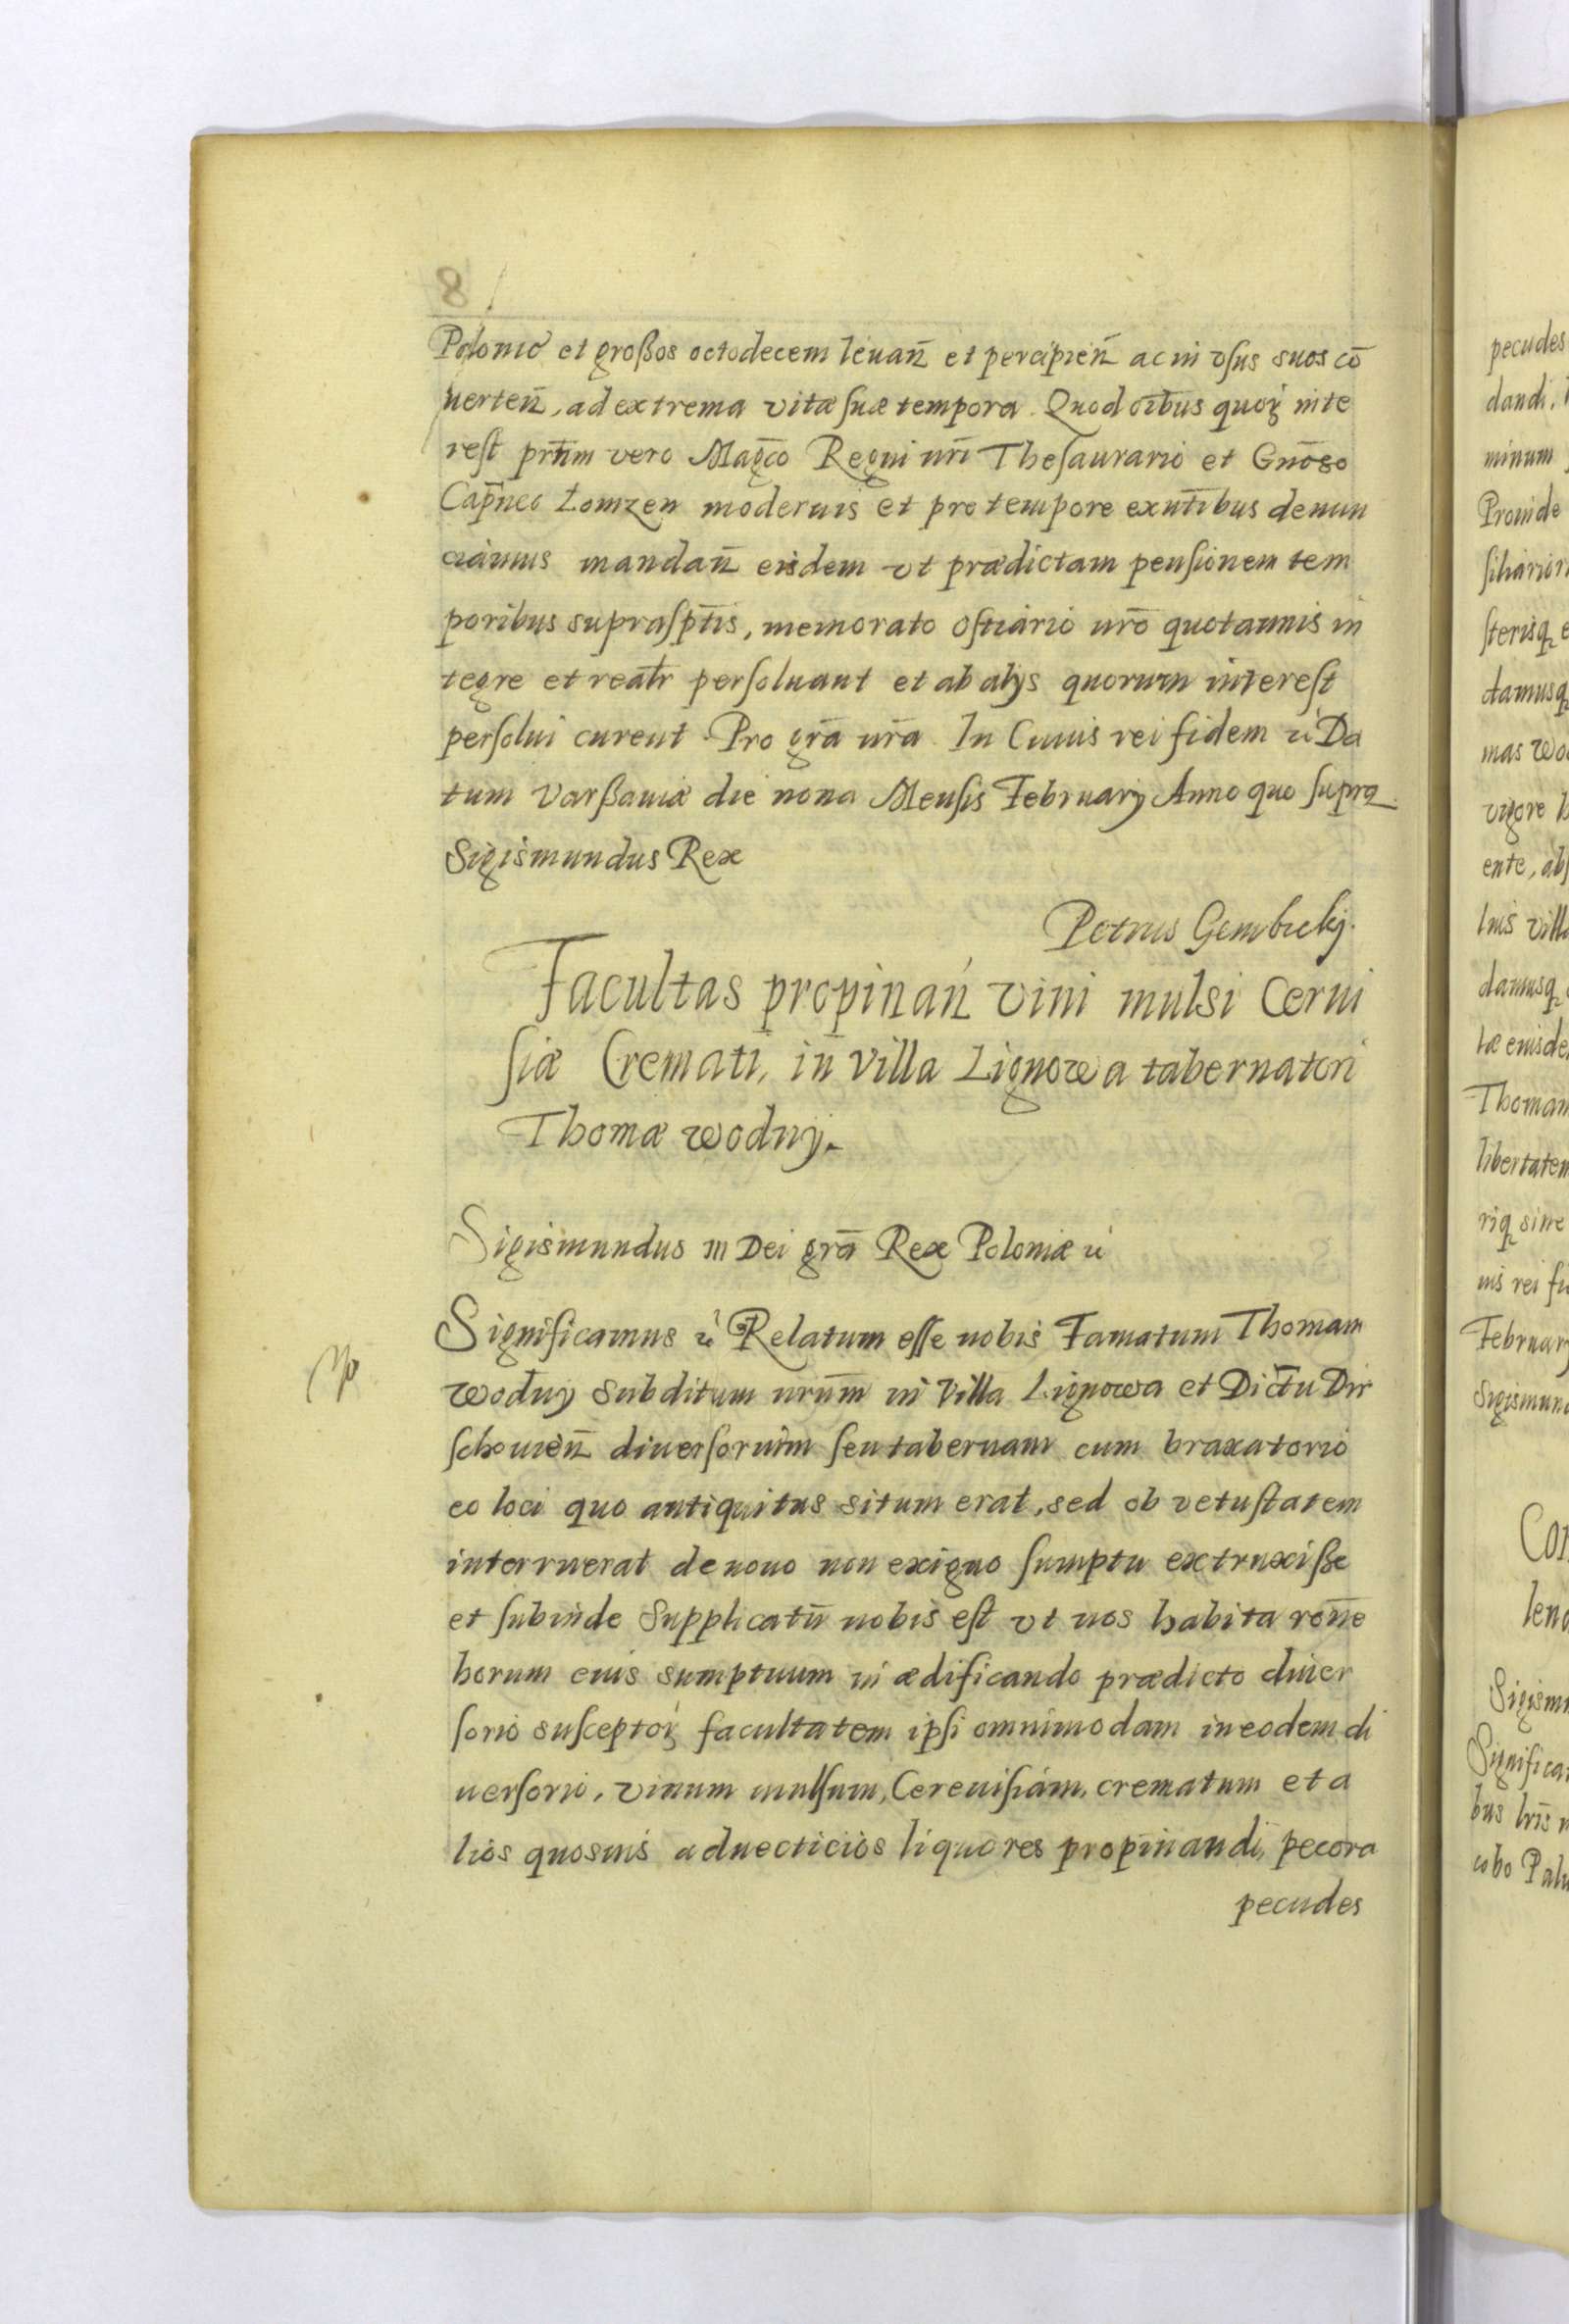 8
Polonic et großos octodecem levan̄ et percipien̄ ac in vſus suos cō
uerten̄, ad extrema vitæ ſuæ tempora. Quod oībus quoꝝ inte
reſt prn̄m vero Magc̄o Regni nrī Theſaurario et Gnōso
Cap̄neo Łomzen modernis et pro tempore exn̄tibus denun
ciamus mandan̄ eisdem vt prædictam penſionem tem
poribus supraſp̄tis, memorato oſtiario nrō quotannis in
tegre et realr̄ perſoluant et ab alijs quorum intereſt
perſolui curent Pro grā nrā. In Cuius rei fidem ic̄ Da
tum Varßauiæ die nona Menſis February Anno quo ſupra
Sigismundus Rex
Petrus Gembicky.
Facultas propinan̄ vini mulsi Cerui
ſiæ Cremati, in Villa Lignowa tabernatori
Thomæ Wodny.
Sigismundus III Dei grā Rex Poloniæ ic̄
Significamus ic̄ Relatum eſſe nobis Famatum Thomam
Wodny Subditum nrūm in Villa Lignowa et Dictu Dir
ſchouien̄ diuerſorium ſeu tabernam cum braxatorio
eo loci quo antiquitus situm erat, sed ob vetuſtatem
interruerat de nouo non exiguo ſumptu extruxiße
et ſubinde Supplicatū nobis eſt vt nos habita rōne
horum eius sumptuum in ædificando prædicto diuer
ſorio suſceptoꝝ facultatem ipſi omnimodam in eodem di
uerſorio, vinum mulſum, Cereuiſiam, crematum et a
lios quosuis aduecticios liquores propinandi, pecora
pecudes
pecudes
dandi,
minum
Prouide
ſiliarior
ſterisq̢ e
ctamusq̢
mas Wo
vigore h
ente, abſ
luis vill
damusq̢
tæ eiusde
Thomam
libertatem
riq̢ sine
uis rei fi
February
Sigismun
Con
len
Sigism
Significa
bus lrīs
cobo Palu